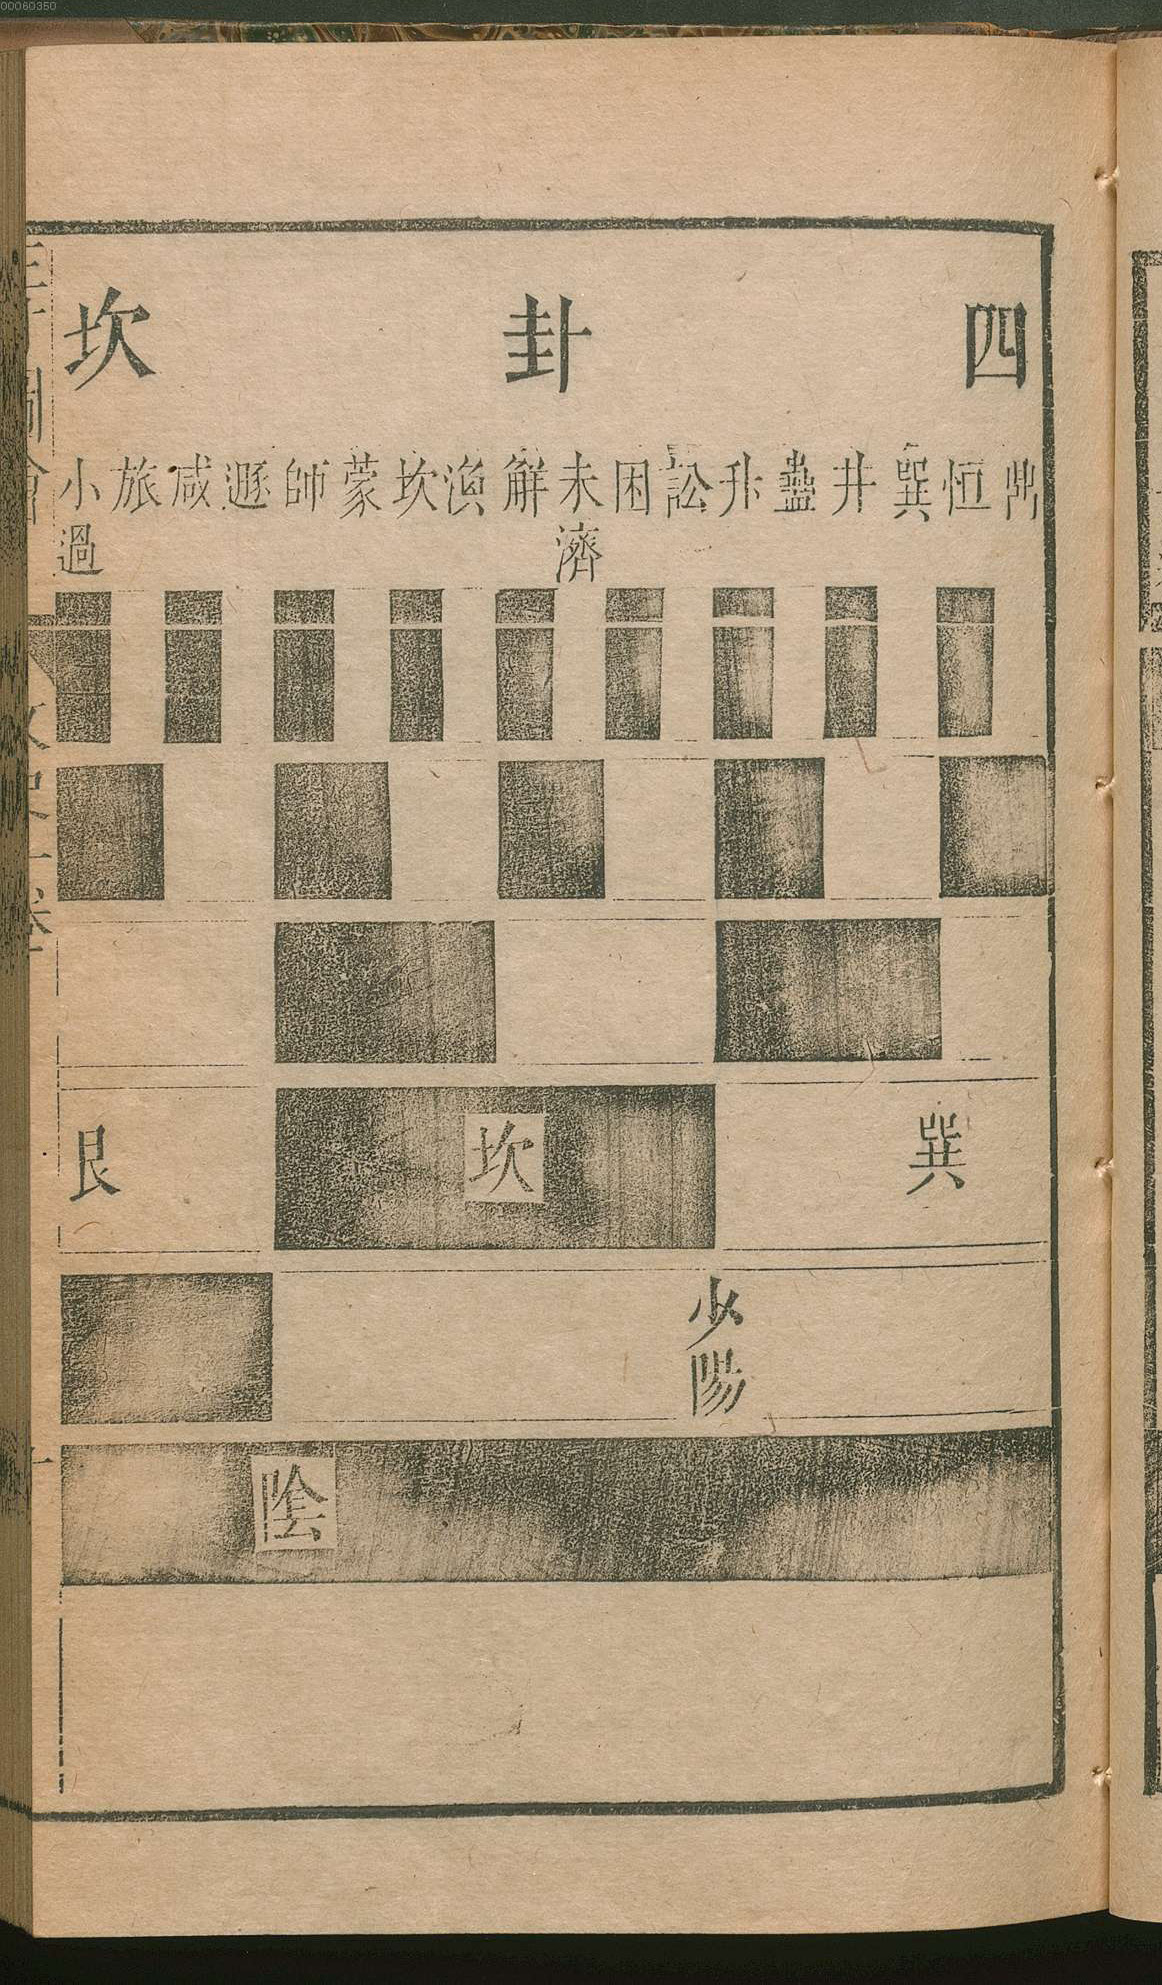 00060350
四 卦 坎
鼎 恒 巽 井 蠱 升 訟 困 未濟 解 渙 坎 蒙 師 遯 咸 旅 小過
巽 坎 艮
少陽
陰